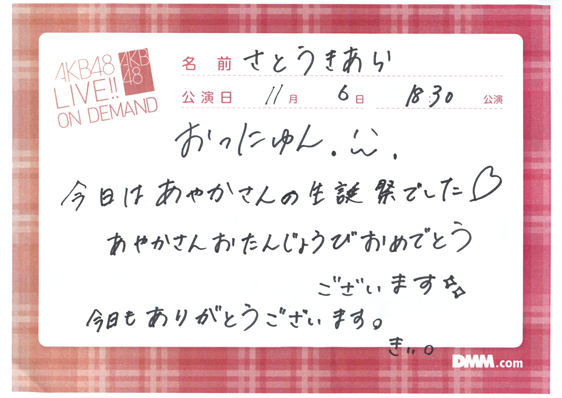 AKB48
LIVE!!
ON DEMAND
AKB
48
名 前 さとうきあら
公演日 11月 6日 18:30 公演
おっにゅん. .
今日はあやかさんの生誕祭でした♡
あやかさんおたんじょうびおめでとう
ございます
今日もありがとうございます。
きぃ。
DMM.com